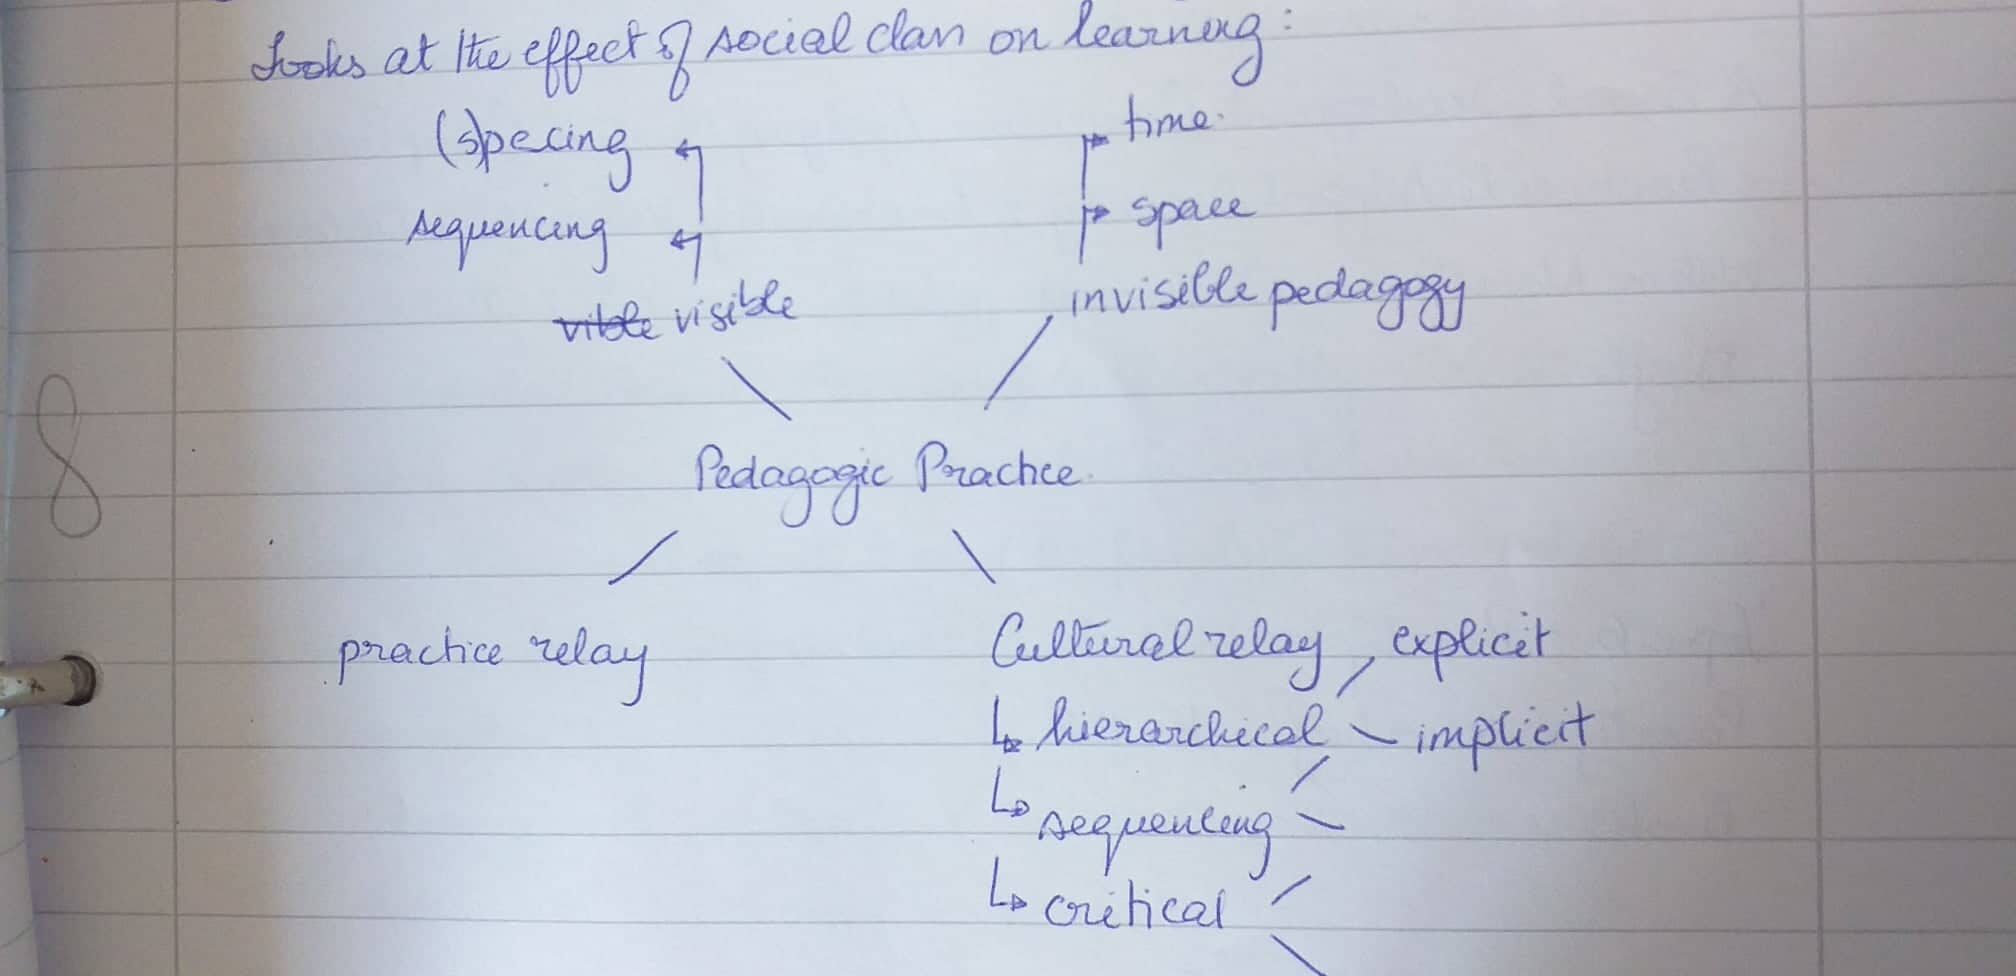 Looks at the effect of social class on learning:
(s)pacing
time.
sequencing
space
vible visible
invisible pedagogy
8
Pedagogic Practice.
practice relay
Cultural relay
explicit
hierarchical
implicit
sequencing
critical